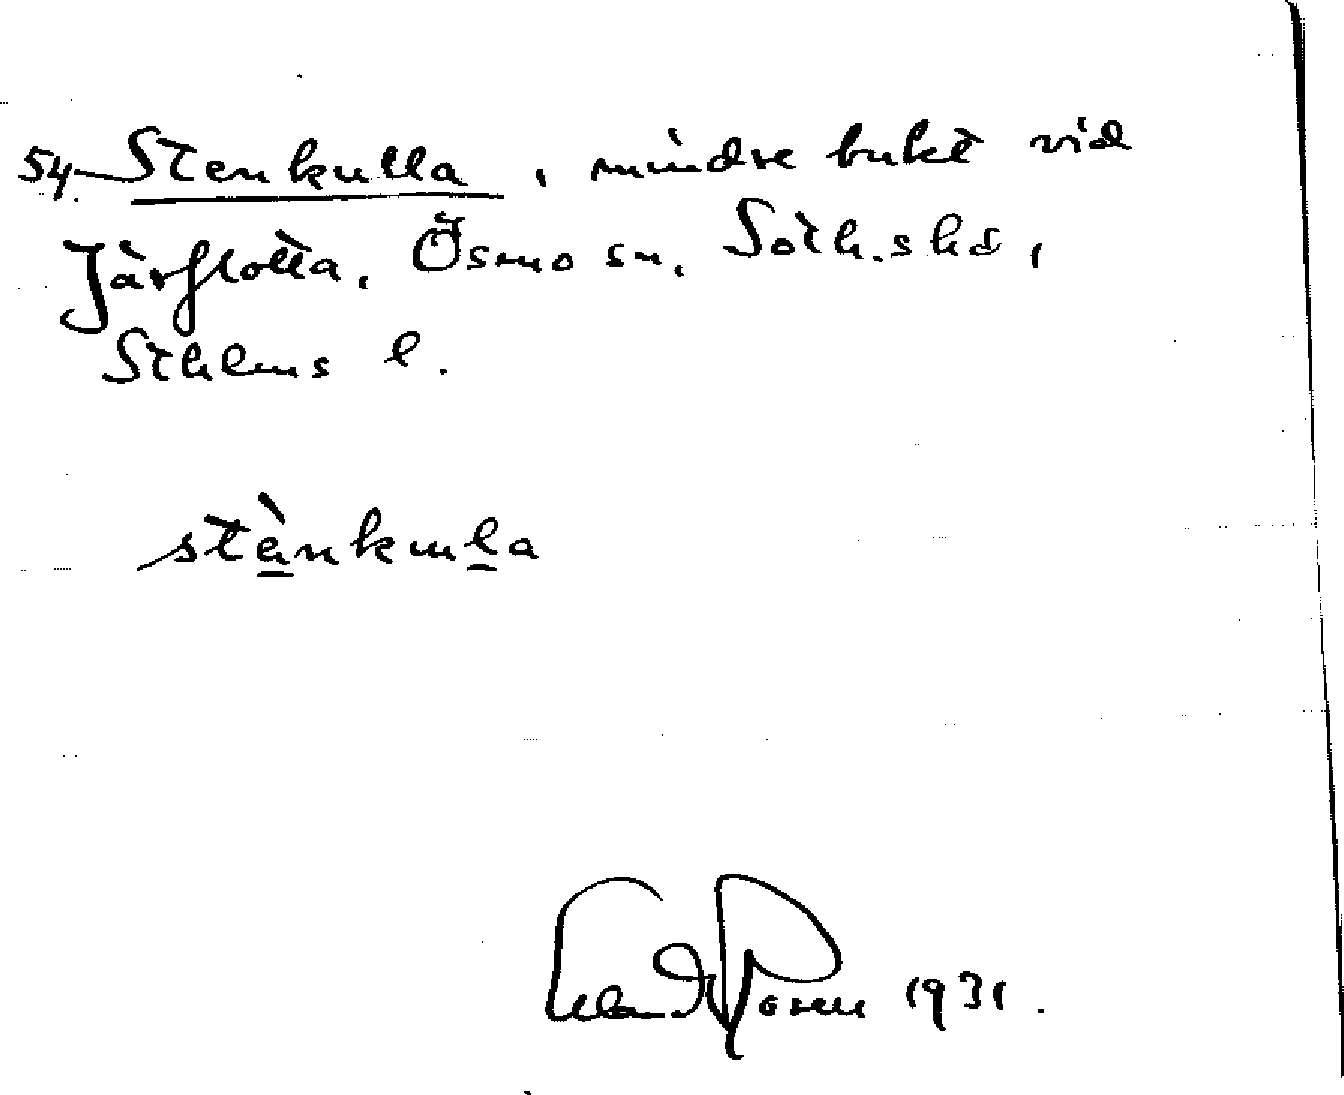 54. Stenkulla, mindre bukt vid
Järflotta, Ösmo sn, Soth.shd,
Sthlms l.
stènkula
1931.